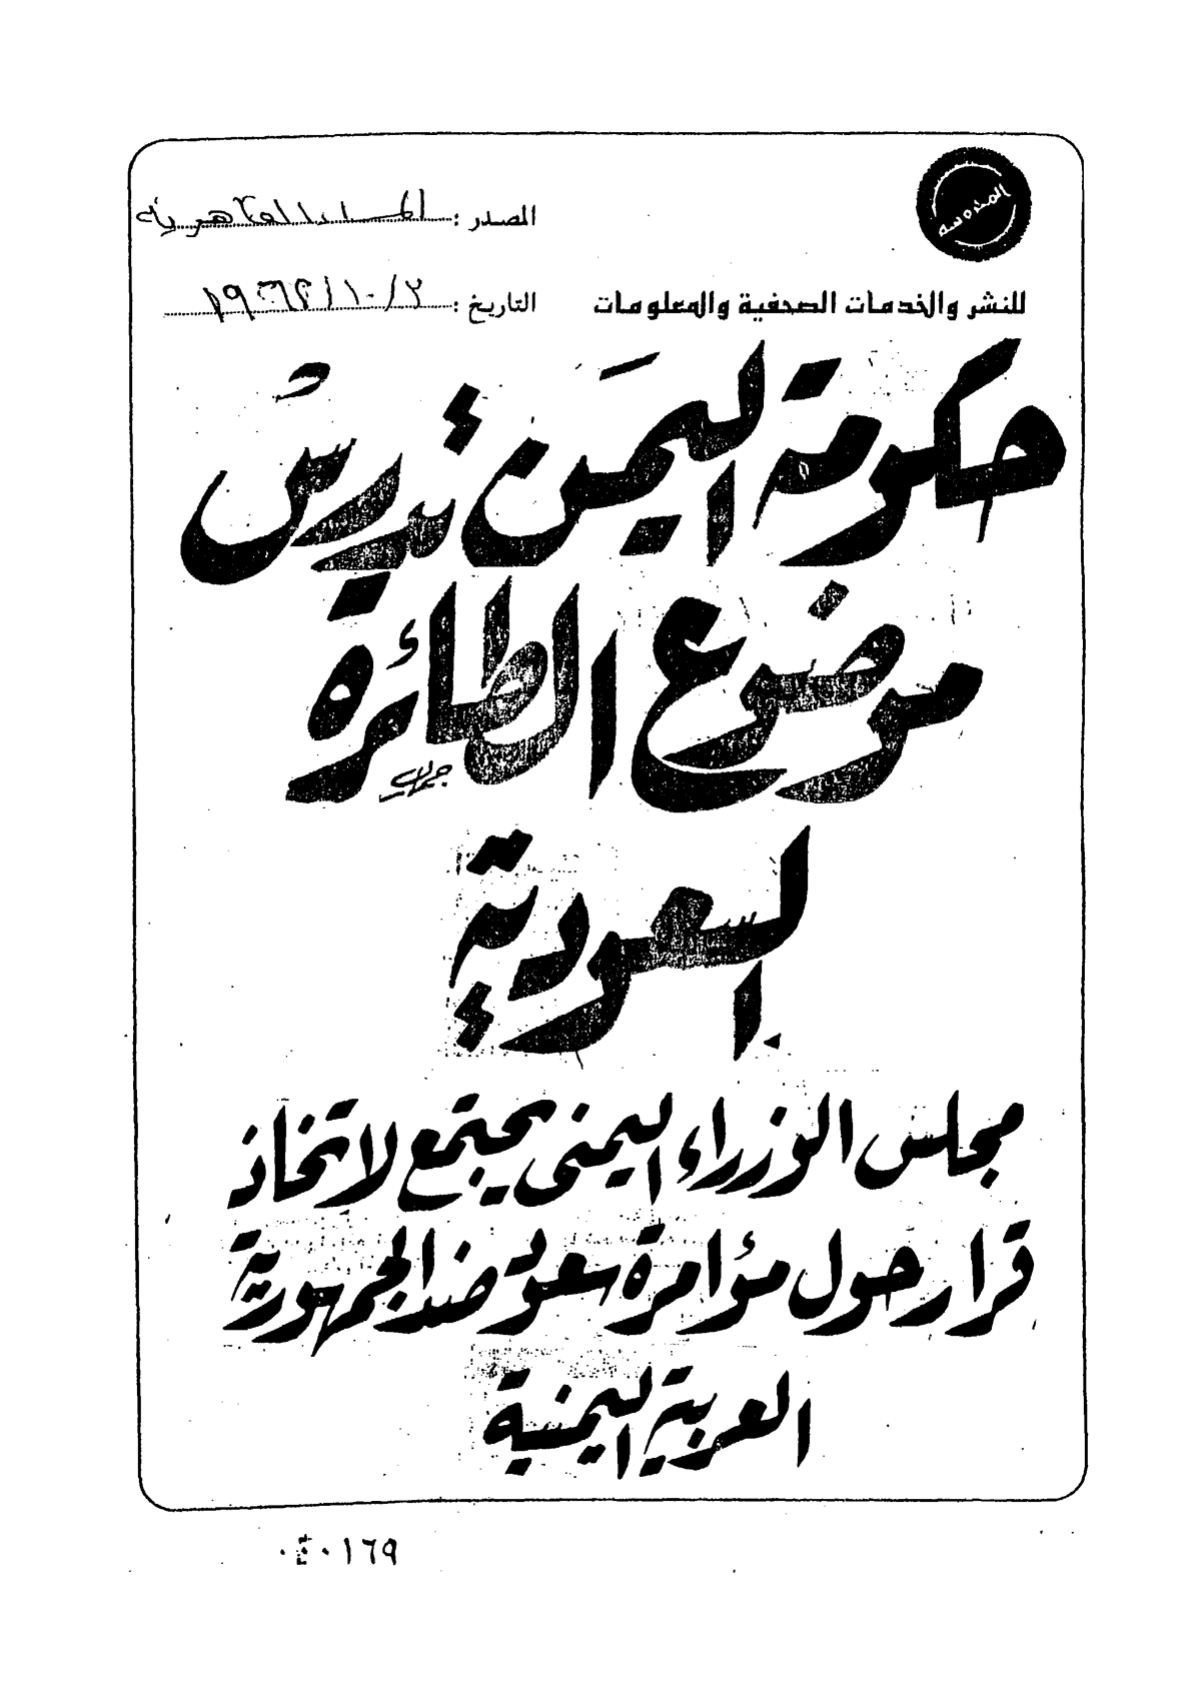 المصدر : المساء القاهرية
التاريخ : ٢/١٠/١٩٦٢
للنشر والخدمات الصحفية والمعلومات
حكومة اليمن تدرس
موضوع الطائرة
السعودية
مجلس الوزراء اليمنى يجتمع لاتخاذ
قرار حول مؤامرة سعود ضد الجمهورية
العربية اليمنية
٠٤٠١٦٩